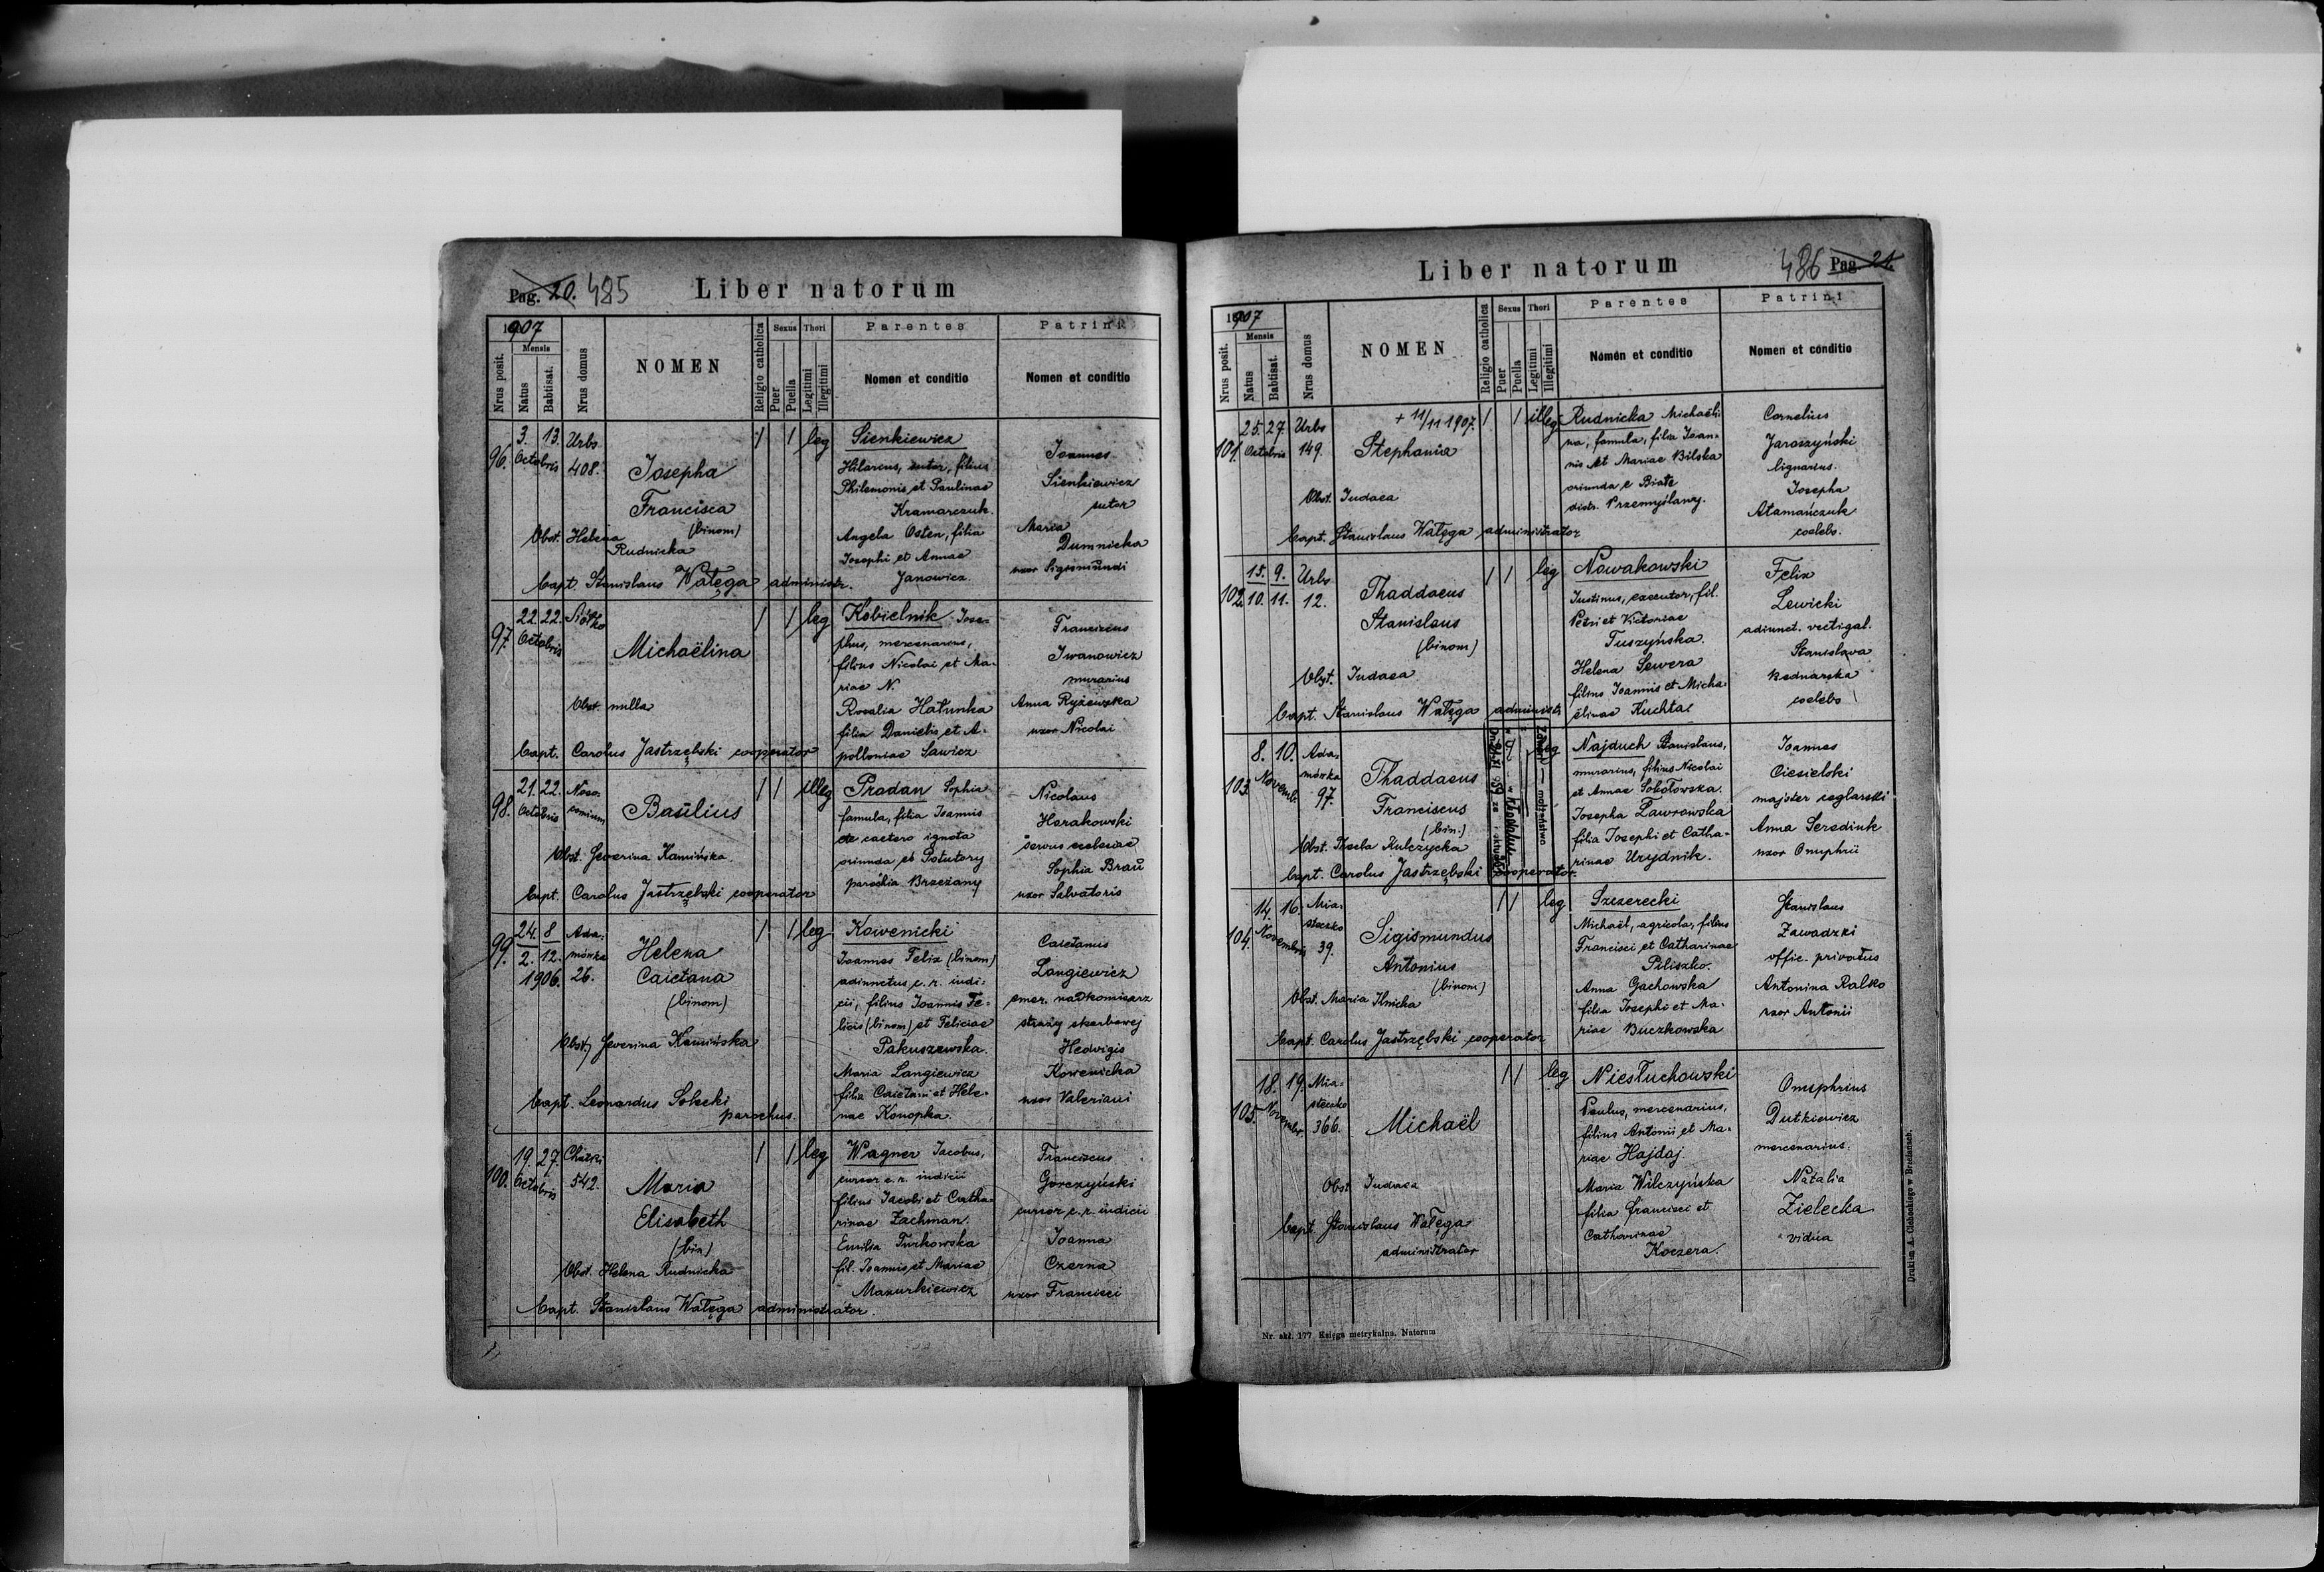 Pag. 20. 485
Liber natorum
1907
Nrus posit.
Mensis
Natus
Babtisat.
Nrus domus
NOMEN
Religio catholica
Sexus
Puer
Puella
Thori
Legitimi
Illegitimi
Parentes
Nomen et conditio
Patrini
Nomen et conditio
96.
3. 13.
Octobris
Urbs
408.
Josepha
Francisca
(binom)
Obst. Helena
Rudnicka
bapt. Stanislaus Wałęga administr.
1 1 leg
Sienkiewicz
Hilarius, sutor, filius
Philemonis et Paulinae
Kramarczuk.
Angela Osten, filia
Josephi et Annae
Janowicz.
Joannes
Sienkiewicz
sutor
Maria
Dumnicka
uxor Sigismundi
97.
22. 22.
Octobris
Siółko
Michaëlina
Obst. nulla
bapt. Carolus Jastrzębski cooperator
1 1 leg
Kobielnik Jose-
phus, mercenarius,
filius Nicolai et Ma-
riae N.
Rosalia Hałunka
filia Danielis et A-
polloniae Sawicz
Franciscus
Iwanowicz
murarius
Anna Ryżewska
uxor Nicolai
98.
21. 22.
Octobris
Noso-
comium
Basilius
Obst. Severina Kamińska
bapt. Carolus Jastrzębski cooperator
1 1 illeg
Pradan Sophia
famula, filia Joannis
de caetero ignota
oriunda e Potutory
parochia Brzeżany
Nicolaus
Horakowski
servus ecclesiae
Sophia Brau
uxor Salvatoris
99.
24. 8
2. 12.
1906.
Ada-
mówka
26.
Helena
Caietana
(binom)
Obst. Severina Kamińska
bapt. Leonardus Solecki
parochus.
1 1 leg
Kowenicki
Joannes Felix (binom)
adiunctus c. r. iudi-
cii, filius Joannis Fe-
licis (binom) et Feliciae
Pakuszewska.
Maria Langiewicz
filia Caietani et Hele-
nae Konopka.
Caietanus
Langiewicz
emer. nadkomisarz
straży skarbowej
Hedvigis
Kowenicka
uxor Valeriani
100.
19. 27.
Octobris
542.
Maria
Elisabeth
(bin)
Obst. Helena Rudnicka
bapt. Stanislaus Wałęga administrator.
1 1 leg
Wagner Jacobus,
cursor c. r. iudicii
filius Jacobi et Catha-
rinae Zachman.
Emilia Turkowska
fil. Joannis et Mariae
Mazurkiewicz
Franciscus
Gorczyński
cursor c. r. iudicii
Joanna
Czerna
uxor Francisci
Liber natorum
486 Pag. 21
1907
Nrus posit.
Mensis
Natus
Babtisat.
Nrus domus
NOMEN
Religio catholica
Sexus
Puer
Puella
Thori
Legitimi
Illegitimi
Parentes
Nomen et conditio
Patrini
Nomen et conditio
101.
25. 27.
Octobris
Urbs
149.
+ 11/11 1907.
Stephania
Obst. Judaea
bapt. Stanislaus Wałęga administrator
1 1 illeg
Rudnicka Michaëli-
na, famula, filia Joan-
nis et Mariae Bilska
oriunda e Białe
distr. Przemyślany.
Cornelius
Jaroszyński
lignarius.
Josepha
Atamańczuk
coelebs.
102.
15. 9.
10. 11.
Urbs
12.
Thaddaeus
Stanislaus
(binom)
Obst. Judaea
bapt. Stanislaus Wałęga administr.
1 1 leg
Nowakowski
Justinus, executor, fil.
Petri et Victoriae
Tuszyńska.
Helena Sewera
filius Joannis et Micha-
ëlinae Kuchta
Felix
Lewicki
adiunct. vectigal.
Stanislava
Bednarska
coelebs
103.
8. 10.
Novemb.
Ada-
mówka
97.
Thaddaeus
Franciscus
(bin.)
Obst. Thecla Kulczycka
bapt. Carolus Jastrzębski cooperator.
małżeństwo
leg
Najduch Stanislaus,
murarius, filius Nicolai
et Annae Sokołowska.
Josepha Ławrowska
filia Josephi et Catha-
rinae Urydnik.
Joannes
Ciesielski
majster ceglarski
Anna Serediuk
uxor Onuphrii
104.
14. 16.
Novembris
Mia-
steczko
39.
Sigismundus
Antonius
(binom)
Obst. Maria Ilnicka
bapt. Carolus Jastrzębski cooperator
1 1 leg
Szczerecki
Michaël, agricola, filius
Francisci et Catharinae
Piliszko.
Anna Gachowska
filia Josephi et Ma-
riae Buczkowska
Stanislaus
Zawadzki
offic. privatus
Antonina Ralko
uxor Antonii
105.
18. 19.
Novembr.
Mia-
steczko
366.
Michaël
Obst Judaea
bapt Stanislaus Wałęga
administrator
1 1 leg
Niesłuchowski
Paulus, mercenarius,
filius Antonii et Ma-
riae Hajdaj
Maria Wilczyńska
filia Francisci et
Catharinae
Koczera.
Onuphrius
Dutkiewicz
mercenarius.
Natalia
Zielecka
vidua
Nr. skł. 177. Księga metrykalna. Natorum
Drukiem A. Cichockiego w Brzeżanach.